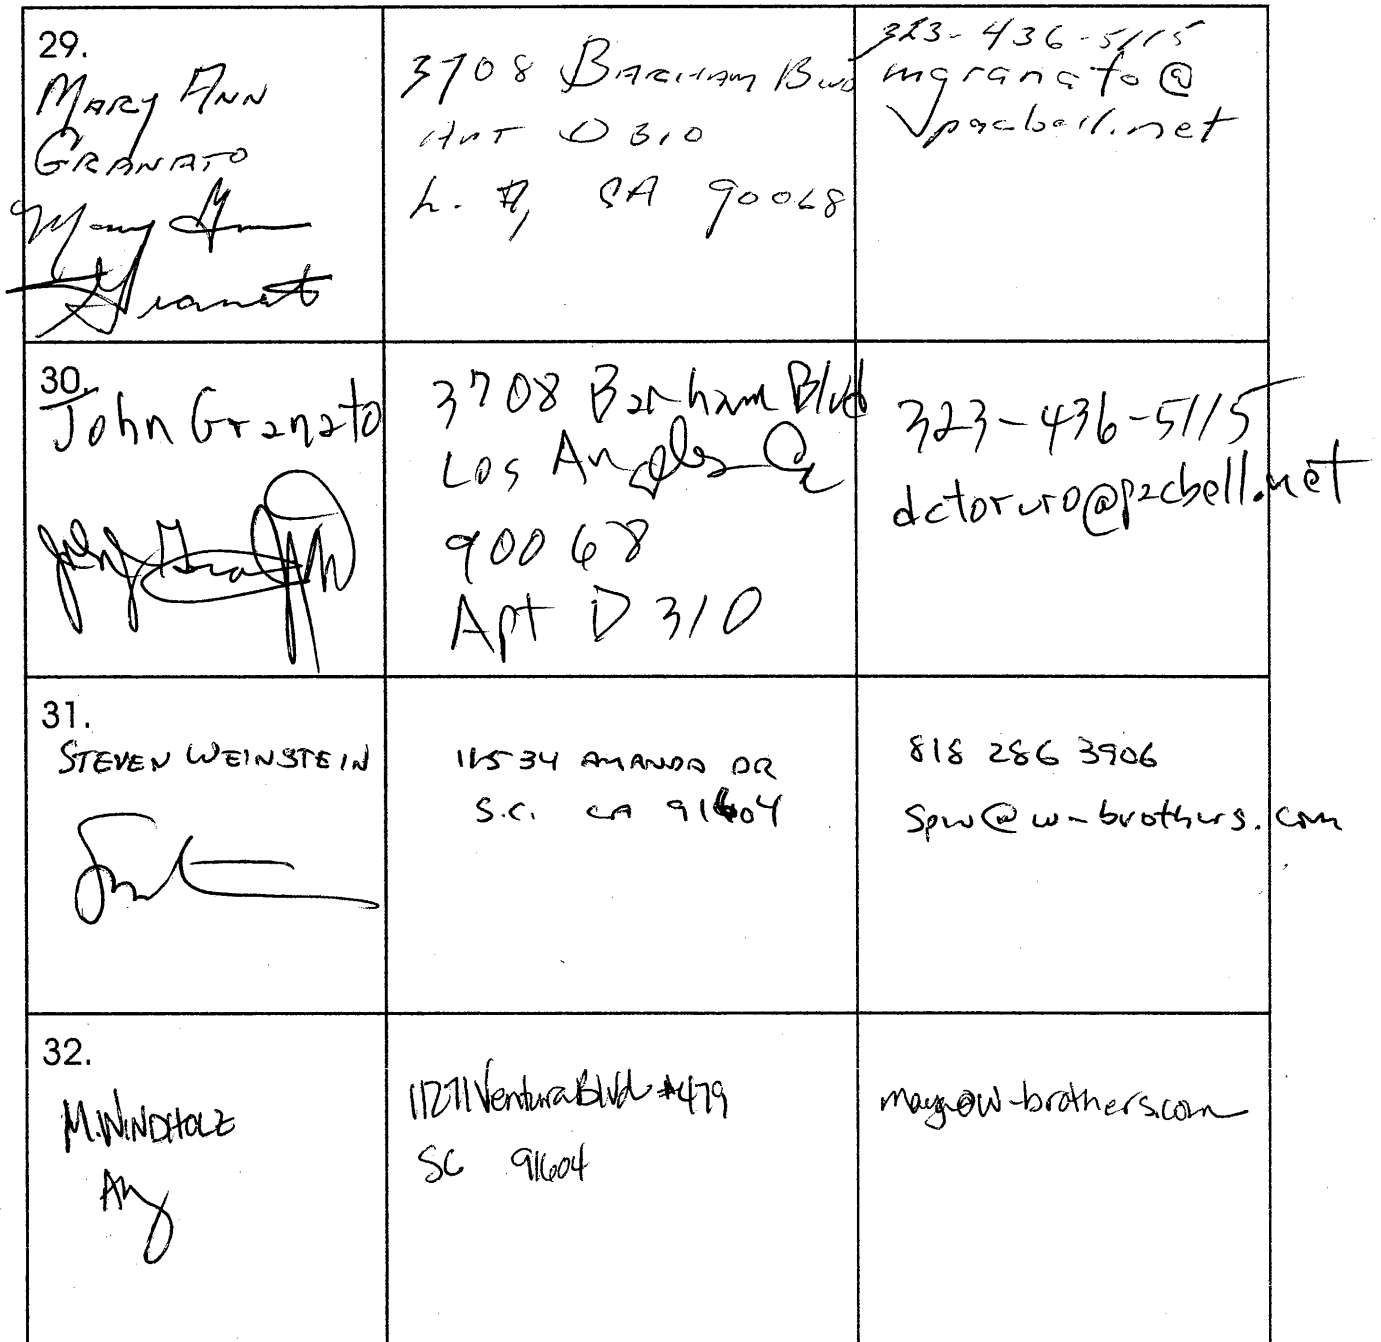 29.
MARY ANN
GRANATO
Mary Ann
Granato
3708 BARHAM BLVD
APT D 310
L. A, CA 90068
323-436-5115
mgranato@
pacbell.net
30.
John Granato
3708 Barham Blvd
Los Angeles Ca
90068
Apt D 310
323-436-5115
dctoruro@pacbell.net
31.
STEVEN WEINSTEIN
11534 AMANDA DR
S.C. CA 91604
818 286 3906
spw@w-brothers.com
32.
M. WINDHOLZ
11271 Ventura Blvd #479
SC 91604